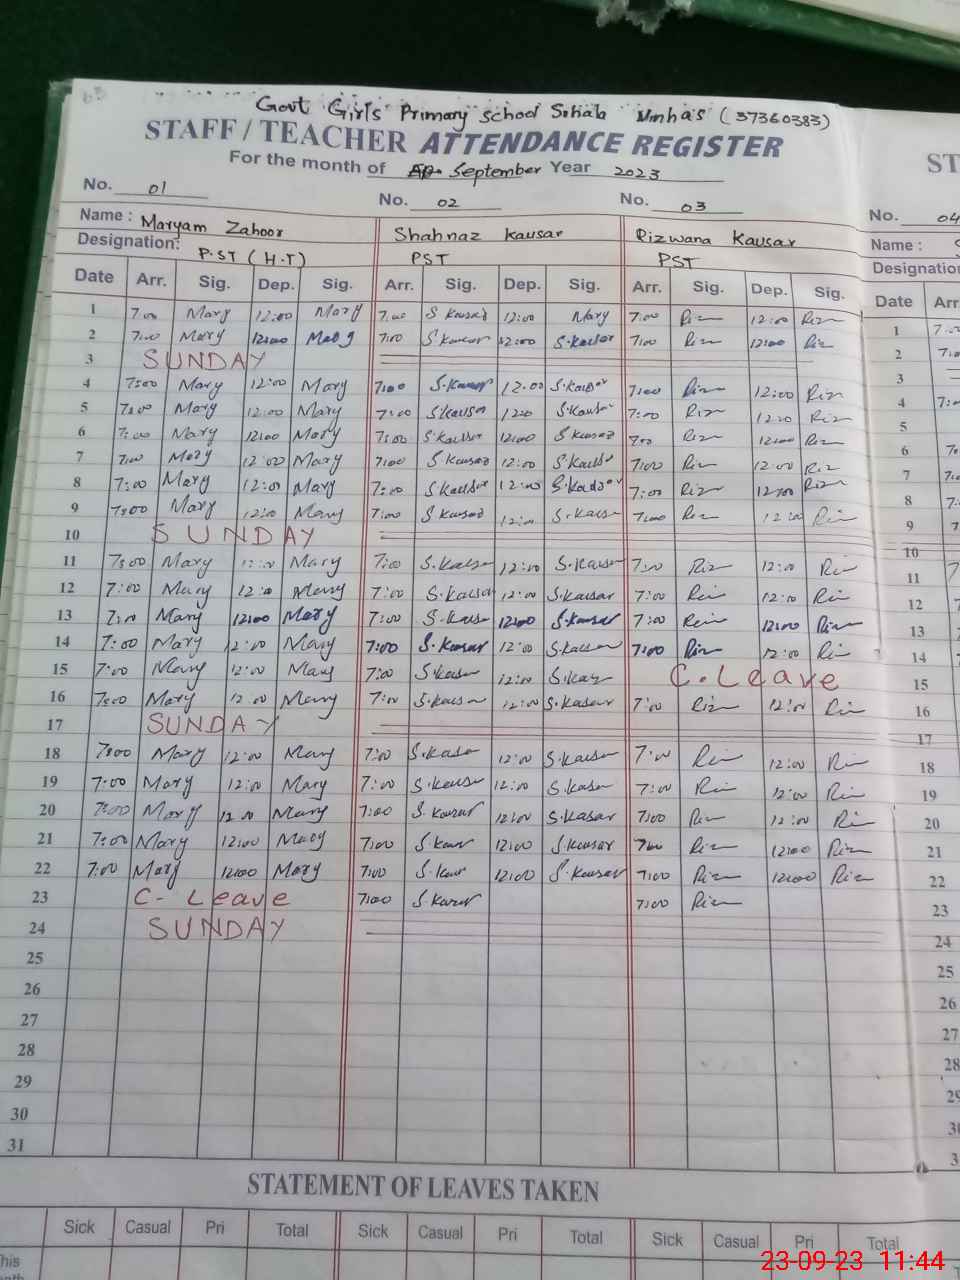 Govt Girls Primary School Sohala Minhas (37360383)
STAFF / TEACHER ATTENDANCE REGISTER
For the month of September Year 2023
No. 01 No. 02 No. 03 No. 04
Name : Maryam Zahoor Shahnaz Kausar Rizwana Kausar Name :
Designation: P.ST (H.T) PST PST Designation
Date Arr. Sig. Dep. Sig. Arr. Sig. Dep. Sig. Arr. Sig. Dep. Sig. Date Arr
1 7:00 Mary 12:00 Mary 7:00 S Kausar 12:00 Mary 7:00 Riz 12:00 Riz 1
2 7:00 Mary 12:00 Mary 7:00 S Kausar 12:00 S.Kausar 7:00 Riz 12:00 Riz 2
3 SUNDAY 3
4 7:00 Mary 12:00 Mary 7:00 S.Kausar 12:00 S.Kausar 7:00 Riz 12:00 Riz 4
5 7:00 Mary 12:00 Mary 7:00 S Kausar 1200 S.Kausar 7:00 Riz 12:00 Riz 5
6 7:00 Mary 12:00 Mary 7:00 S.Kausar 12:00 S.Kausar 700 Riz 12:00 Riz 6
7 7:00 Mary 12:00 Mary 7:00 S.Kausar 12:00 S.Kausar 7:00 Riz 12:00 Riz 7
8 7:00 Mary 12:00 Mary 7:00 S Kausar 12:00 S.Kausar 7:00 Riz 12:00 Riz 8
9 7:00 Mary 12:00 Mary 7:00 S Kausar 12:00 S.Kausar 7:00 Riz 12:00 Riz 9
10 SUNDAY 10
11 7:00 Mary 12:00 Mary 7:00 S.Kausar 12:00 S.Kausar 7:00 Riz 12:00 Riz 11
12 7:00 Mary 12:00 Mary 7:00 S.Kausar 12:00 S.Kausar 7:00 Riz 12:00 Riz 12
13 7:00 Mary 12:00 Mary 7:00 S.Kausar 12:00 S.Kausar 7:00 Riz 12:00 Riz 13
14 7:00 Mary 12:00 Mary 7:00 S.Kausar 12:00 S.Kausar 7:00 Riz 12:00 Riz 14
15 7:00 Mary 12:00 Mary 7:00 S.Kausar 12:00 S.Kausar C. Leave 15
16 7:00 Mary 12:00 Mary 7:00 S.Kausar 12:00 S.Kausar 7:00 Riz 12:00 Riz 16
17 SUNDAY 17
18 7:00 Mary 12:00 Mary 7:00 S.Kausar 12:00 S.Kausar 7:00 Riz 12:00 Riz 18
19 7:00 Mary 12:00 Mary 7:00 S.Kausar 12:00 S.Kausar 7:00 Riz 12:00 Riz 19
20 7:00 Mary 12:00 Mary 7:00 S.Kausar 12:00 S.Kausar 7:00 Riz 12:00 Riz 20
21 7:00 Mary 12:00 Mary 7:00 S.Kausar 12:00 S.Kausar 7:00 Riz 12:00 Riz 21
22 7:00 Mary 12:00 Mary 7:00 S.Kausar 12:00 S.Kausar 7:00 Riz 12:00 Riz 22
23 C- Leave 7:00 S.Kausar 7:00 Riz 23
24 SUNDAY 24
25 25
26 26
27 27
28 28
29 29
30
31
STATEMENT OF LEAVES TAKEN
Sick Casual Pri Total Sick Casual Pri Total Sick Casual Pri Total
23-09-23 11:44